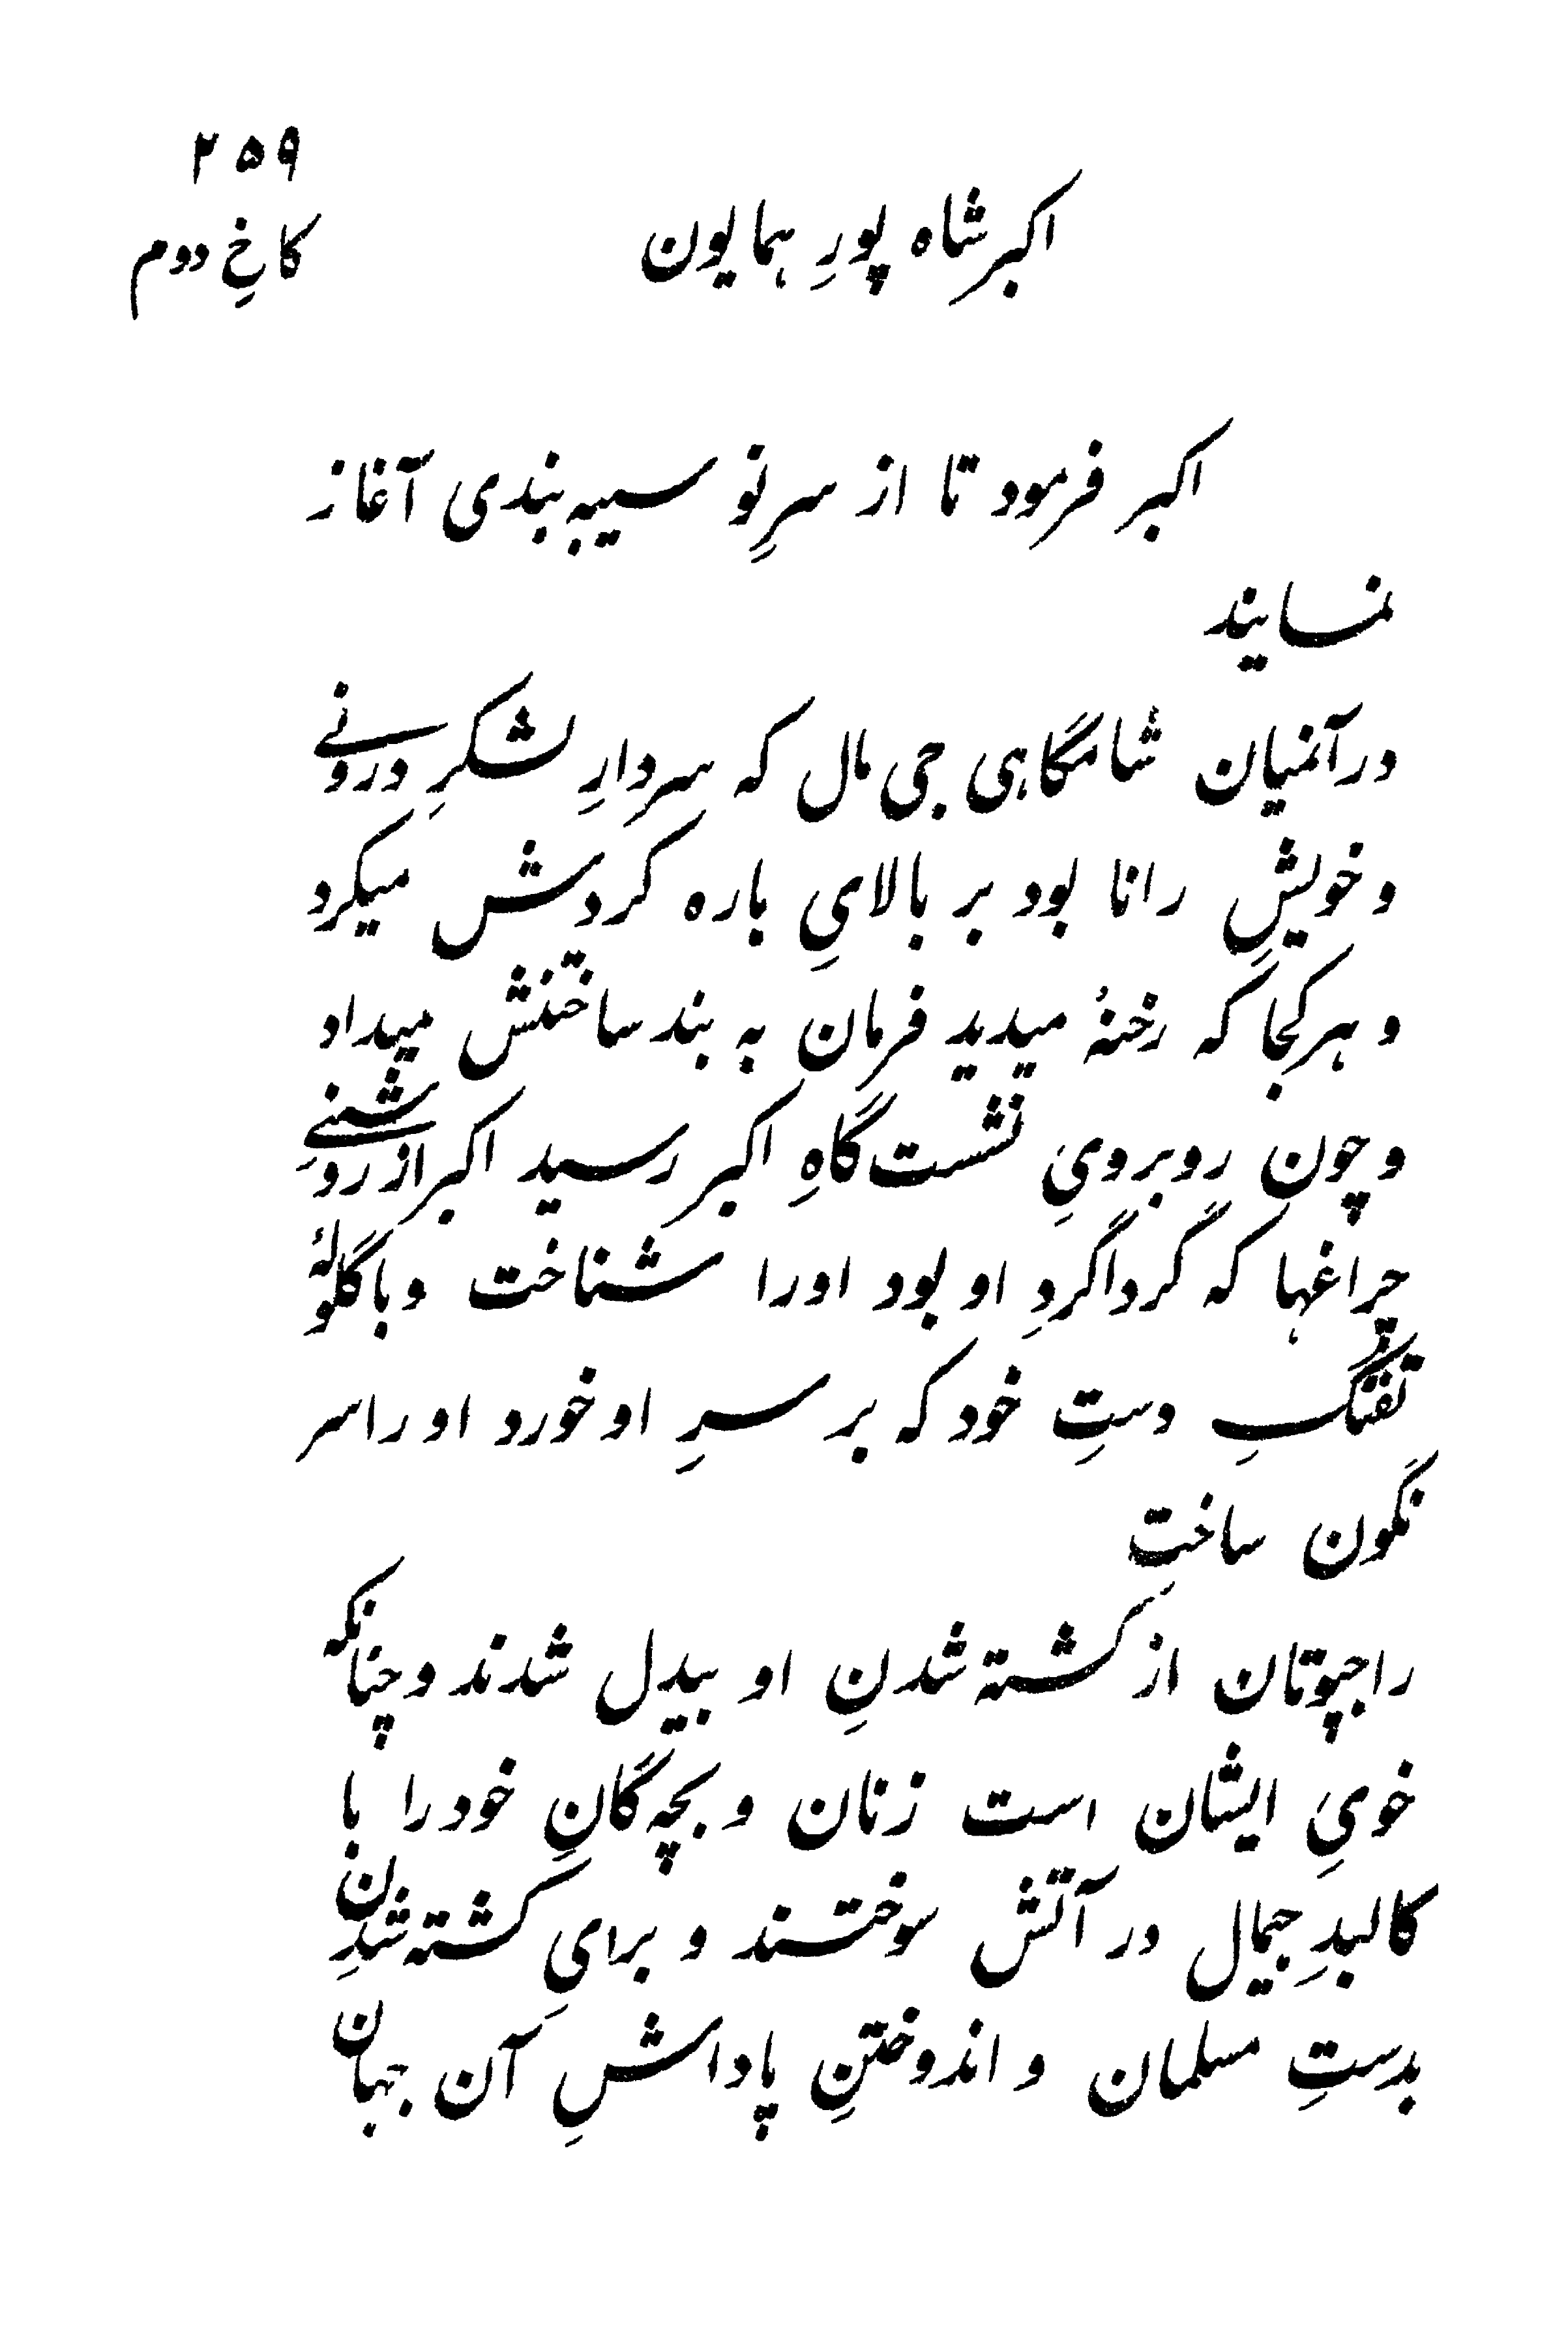 ۲۵۹
اکبر شاه پورِ همایون
کاخِ دوم
اکبر فرمود تا از سرِ نو سیبه‌بندی آغاز
نمایند
در آنمیان شامگاهی جی مال که سردارِ لشکرِ درونے
و خویشِ رانا بود بر بالایِ باره گردش میکرد
و هر کجا که رخنۀ میدید فرمان به بند ساختنش میداد
و چون روبرویِ نشست‌گاهِ اکبر رسید اکبر از روشنیِ
چراغها که گرداگردِ او بود اورا شناخت و با گلولۀ
تفنگِ دستِ خود که بر سرِ او خورد او را سر
نگون ساخت
راجپوتان از کشته شدنِ او بیدل شدند و چنانکه
خویِ ایشان است زنان و بچه‌گانِ خود را با
کالبدِ جیمال در آتش سوختند و برایِ کشته شدن
بدستِ مسلمان و اندوختنِ پاداشِ آن جهان